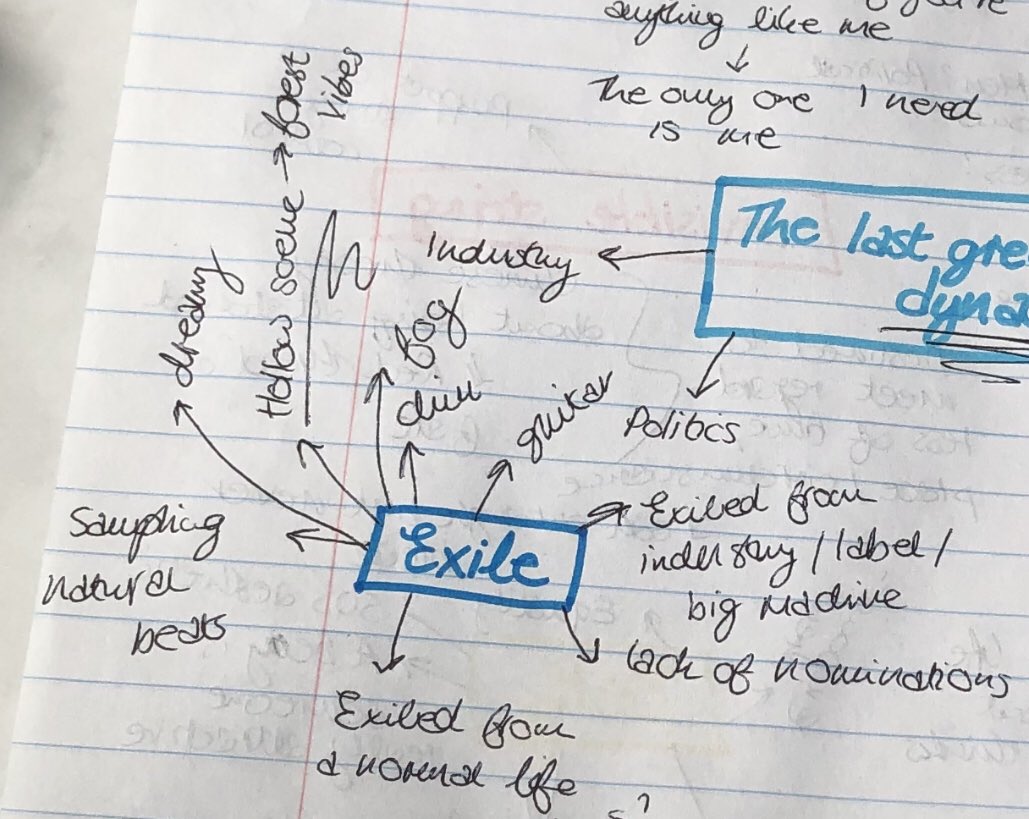 anything like me
↓
The only one I need
is me
The last gre
dyna
Industry
Politics
forest
vibes
Hollow soeue →
dreamy
fog
dim
guitar
Sampling
natural
beats
Exile
Exiled from
industry / label /
big machine
Lack of nominations
Exiled from
a normal life